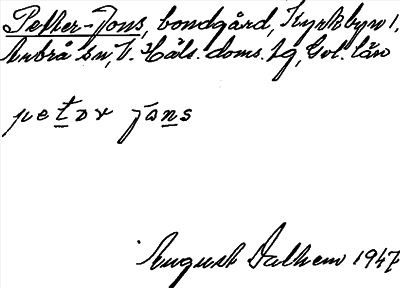 Petter-Jons, bondgård, Kyrkbyn 1,
Arbrå sn, V. Häls. doms. tg, Gvl. län
petər jons
August Dalhem 1947